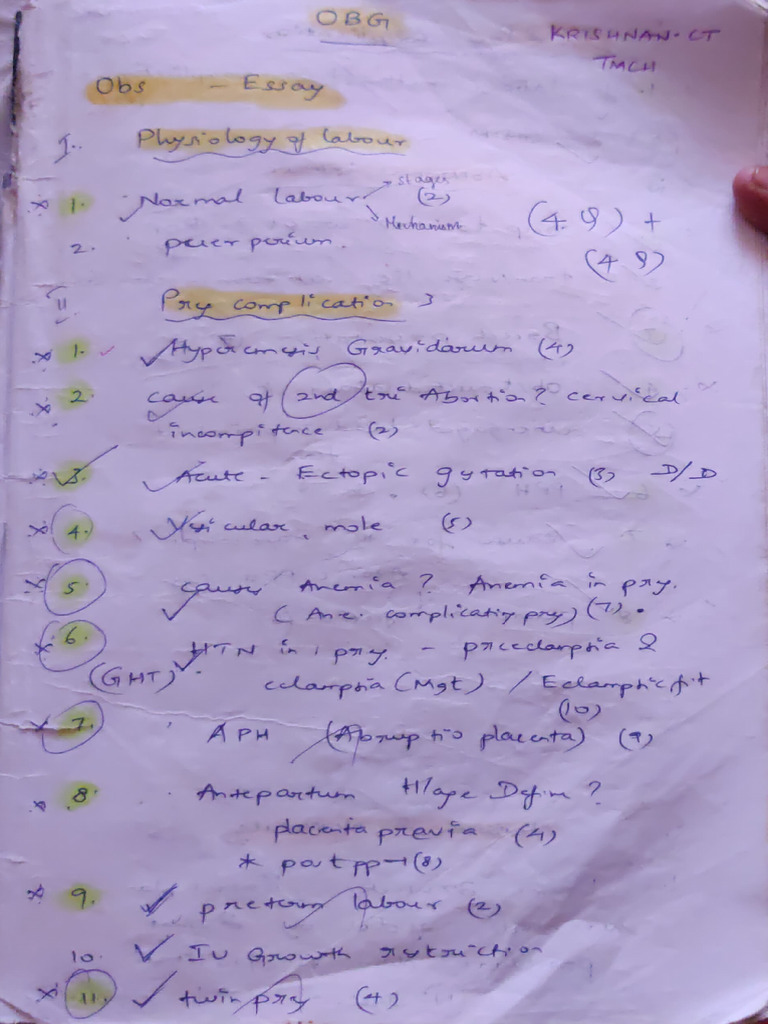 OBG
KRISHNAN-CT
TMCH
Obs - Essay
I. Physiology of labour
* 1. Normal labour stages (2)
Mechanism
(4.9) +
2. puerperium.
(4 9)
II Prg complication 3
* 1. Hyperemesis Gravidarum (4)
* 2. cause of 2nd tri Abortion? cervical
incompitence (2)
* 3. Acute - Ectopic gstation (3) D/D
* 4. Vesicular mole (5)
* 5. causes Anemia? Anemia in prg.
(Ane. complicating prg) (7).
* 6. HTN in prg. - preeclampsia &
(GHT) eclampsia (Mgt) / Eclamptic fit
(10)
* 7. APH (Abruptio placenta) (9)
* 8. Antepartum H/age Define?
placenta previa (4)
* post pp → (8)
* 9. preterm labour (2)
10. IU Growth restriction
* 11. twin prg (4)